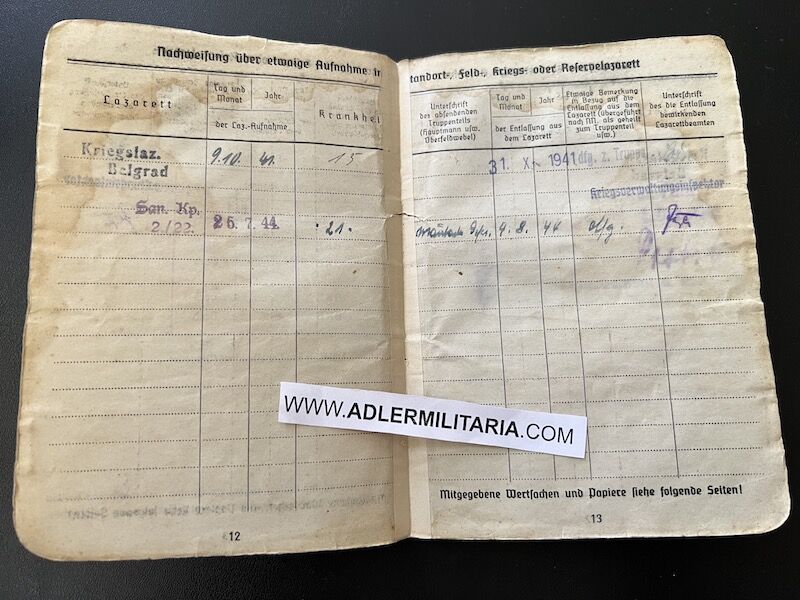 Nachweisung über etwaige Aufnahme in
Standort-, Feld-, Kriegs- oder Reservelazarett
Lazarett
Tag und Monat
Jahr
der Laz.-Aufnahme
Krankhei
Unterschrift
des absendenden
Truppenteils
(Hauptmann usw.
Oberfeldwebel)
Tag und
Monat
Jahr
der Entlassung aus
dem Lazarett
Etwaige Bemerkung
in Bezug auf die
Entlassung aus dem
Lazarett (übergeführt
nach NN. als geheilt
zum Truppenteil
usw.)
Unterschrift
des die Entlassung
bewirkenden
Lazarettbeamten
Kriegslaz.
Belgrad
9.10. 41. 15
31. X. 1941 dfg. z.
Kriegsverwaltungsinspektor
San. Kp.
2/22. 26. 7. 44. · 21 ·
4. 8. 44
WWW.ADLERMILITARIA.COM
Mitgegebene Wertsachen und Papiere siehe folgende Seiten!
12
13